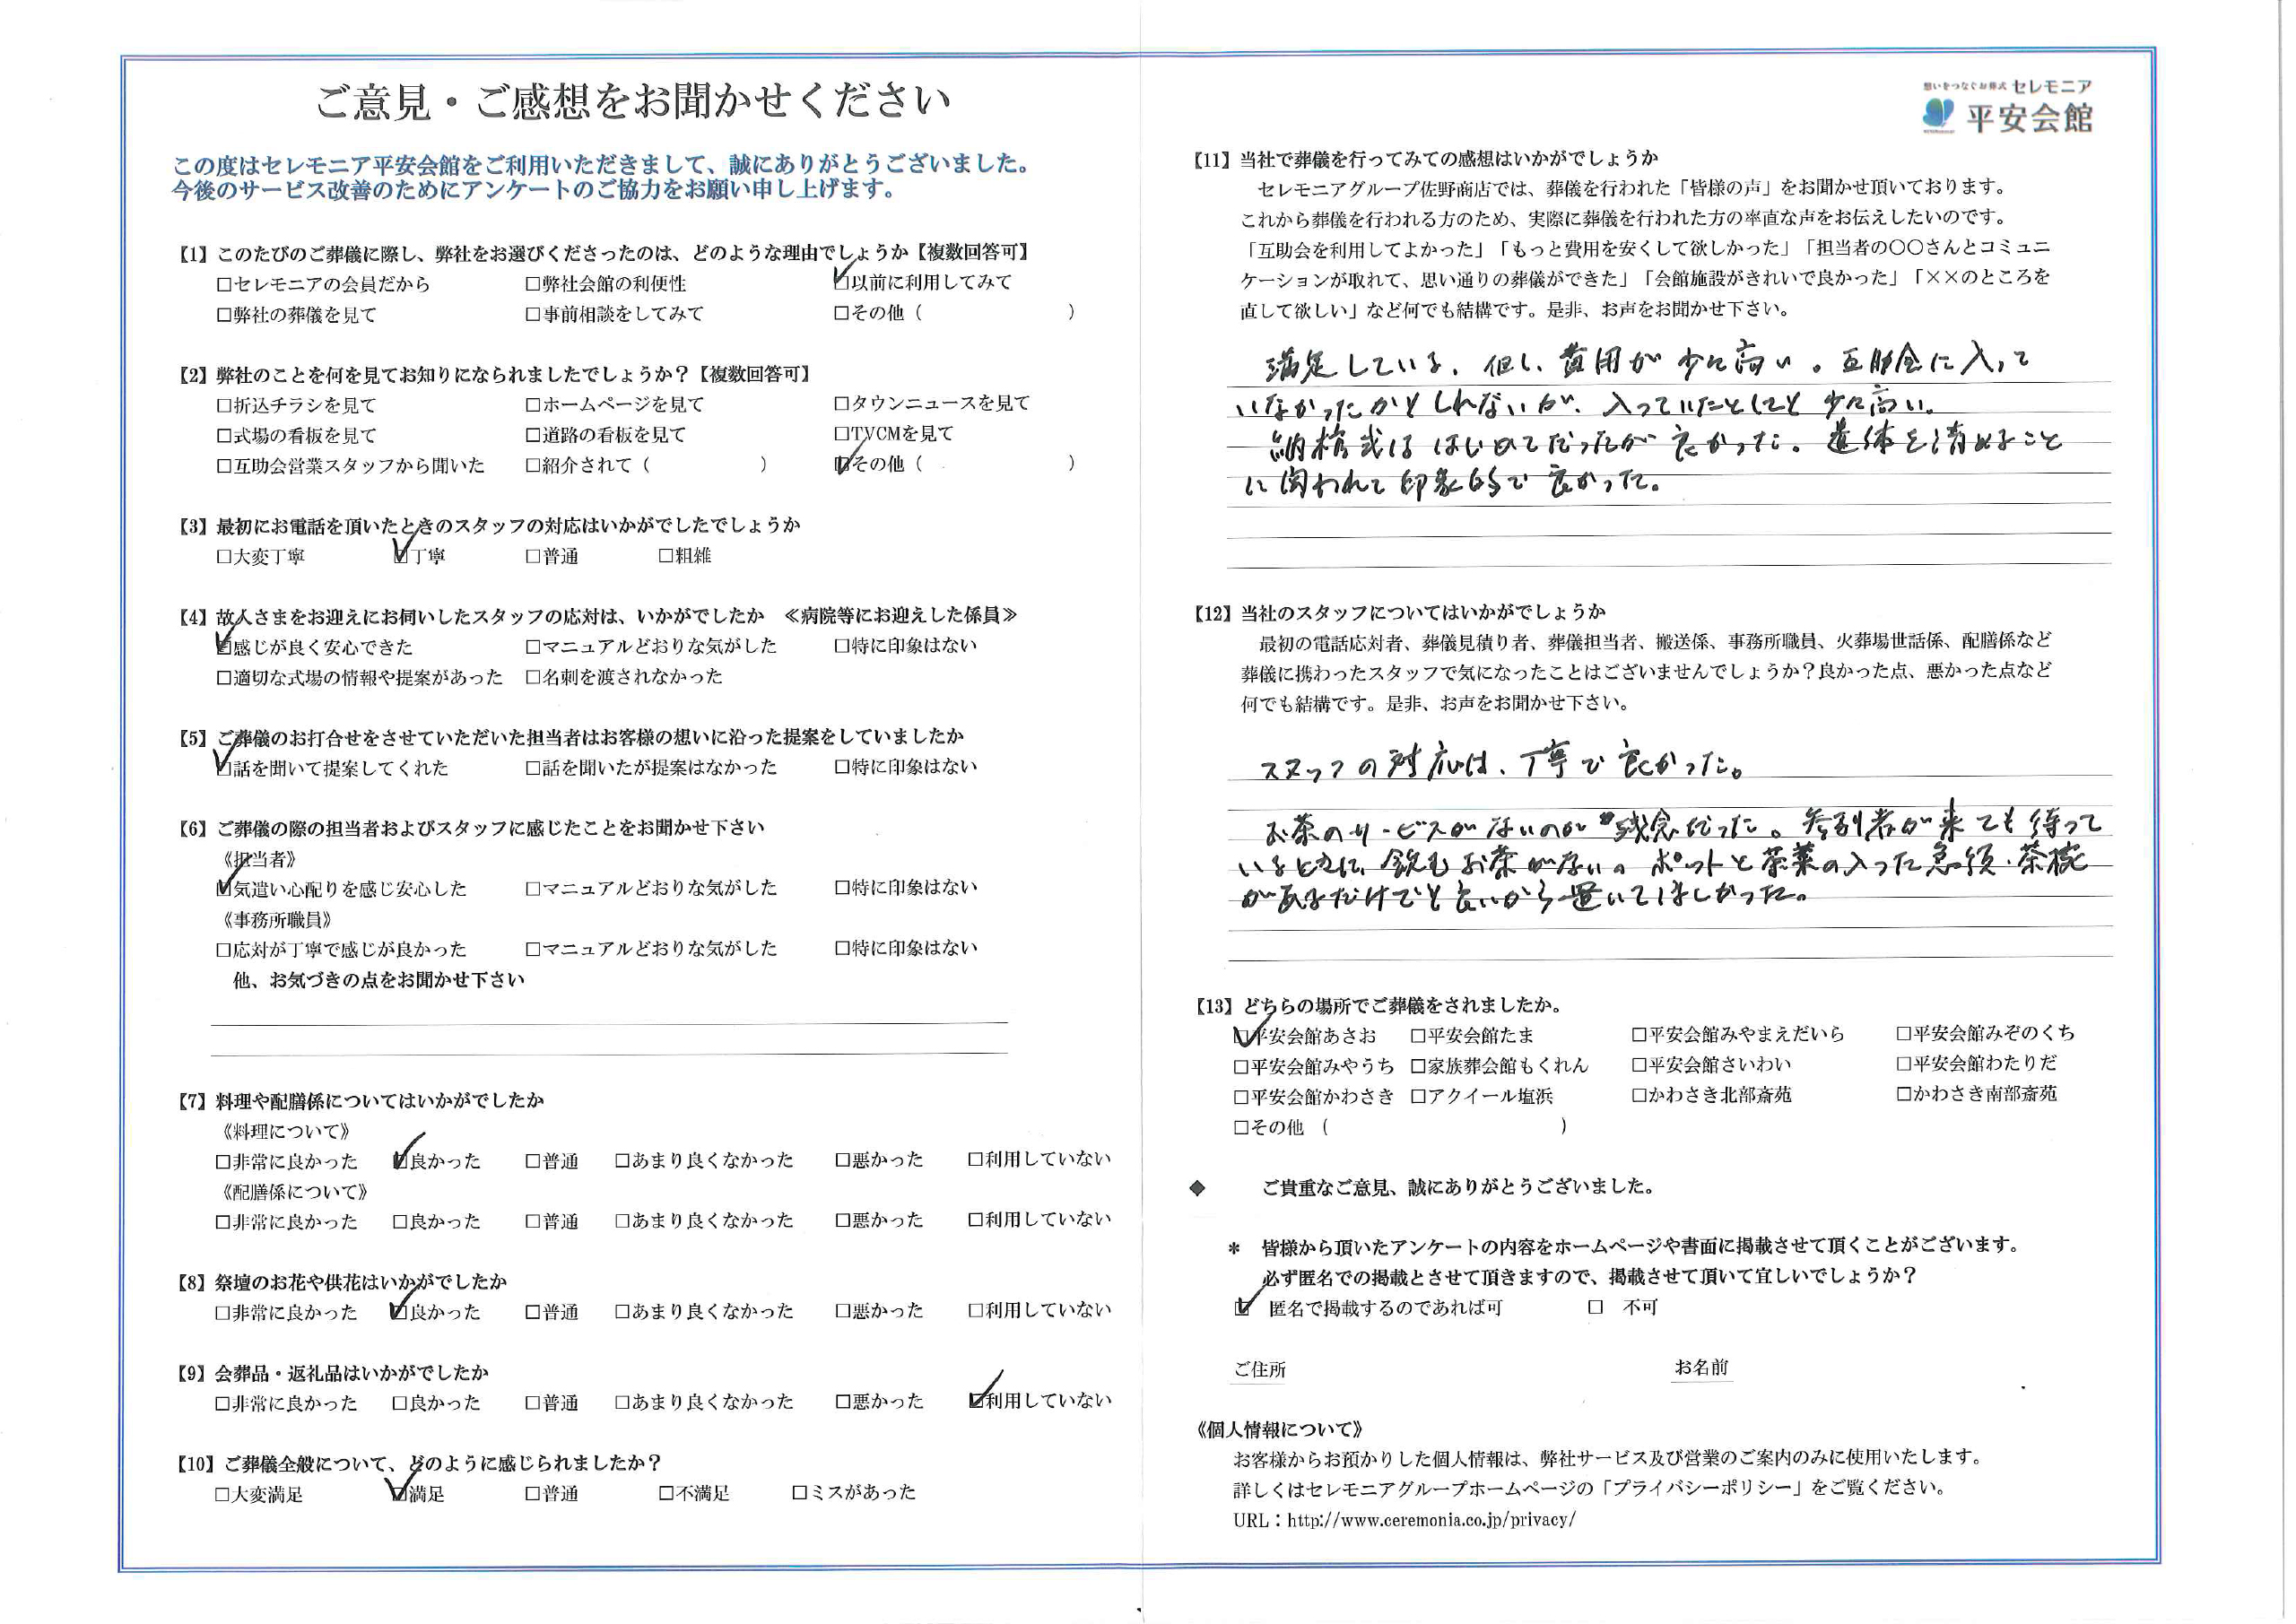 ご意見・ご感想をお聞かせください
この度はセレモニア平安会館をご利用いただきまして、誠にありがとうございました。
今後のサービス改善のためにアンケートのご協力をお願い申し上げます。
【1】このたびのご葬儀に際し、弊社をお選びくださったのは、どのような理由でしょうか【複数回答可】
□セレモニアの会員だから □弊社会館の利便性 ☑以前に利用してみて
□弊社の葬儀を見て □事前相談をしてみて □その他（ ）
【2】弊社のことを何を見てお知りになられましたでしょうか？【複数回答可】
□折込チラシを見て □ホームページを見て □タウンニュースを見て
□式場の看板を見て □道路の看板を見て □TVCMを見て
□互助会営業スタッフから聞いた □紹介されて（ ） ☑その他（ ）
【3】最初にお電話を頂いたときのスタッフの対応はいかがでしたでしょうか
□大変丁寧 ☑丁寧 □普通 □粗雑
【4】故人さまをお迎えにお伺いしたスタッフの応対は、いかがでしたか ≪病院等にお迎えした係員≫
☑感じが良く安心できた □マニュアルどおりな気がした □特に印象はない
□適切な式場の情報や提案があった □名刺を渡されなかった
【5】ご葬儀のお打合せをさせていただいた担当者はお客様の想いに沿った提案をしていましたか
☑話を聞いて提案してくれた □話を聞いたが提案はなかった □特に印象はない
【6】ご葬儀の際の担当者およびスタッフに感じたことをお聞かせ下さい
《担当者》
☑気遣い心配りを感じ安心した □マニュアルどおりな気がした □特に印象はない
《事務所職員》
□応対が丁寧で感じが良かった □マニュアルどおりな気がした □特に印象はない
他、お気づきの点をお聞かせ下さい
【7】料理や配膳係についてはいかがでしたか
《料理について》
□非常に良かった ☑良かった □普通 □あまり良くなかった □悪かった □利用していない
《配膳係について》
□非常に良かった □良かった □普通 □あまり良くなかった □悪かった □利用していない
【8】祭壇のお花や供花はいかがでしたか
□非常に良かった ☑良かった □普通 □あまり良くなかった □悪かった □利用していない
【9】会葬品・返礼品はいかがでしたか
□非常に良かった □良かった □普通 □あまり良くなかった □悪かった ☑利用していない
【10】ご葬儀全般について、どのように感じられましたか？
□大変満足 ☑満足 □普通 □不満足 □ミスがあった
想いをつなぐお葬式 セレモニア
平安会館
【11】当社で葬儀を行ってみての感想はいかがでしょうか
セレモニアグループ佐野商店では、葬儀を行われた「皆様の声」をお聞かせ頂いております。
これから葬儀を行われる方のため、実際に葬儀を行われた方の率直な声をお伝えしたいのです。
「互助会を利用してよかった」「もっと費用を安くして欲しかった」「担当者の〇〇さんとコミュニ
ケーションが取れて、思い通りの葬儀ができた」「会館施設がきれいで良かった」「××のところを
直して欲しい」など何でも結構です。是非、お声をお聞かせ下さい。
満足している、但し、費用が少々高い。互助会に入って
いなかったかもしれないが、入っていたとしても少々高い。
納棺式ははじめてだったが良かった。遺体を清めること
に関われて印象的で良かった。
【12】当社のスタッフについてはいかがでしょうか
最初の電話応対者、葬儀見積り者、葬儀担当者、搬送係、事務所職員、火葬場世話係、配膳係など
葬儀に携わったスタッフで気になったことはございませんでしょうか？良かった点、悪かった点など
何でも結構です。是非、お声をお聞かせ下さい。
スタッフの対応は、丁寧で良かった。
お茶のサービスがないのが残念だった。参列者が来ても待って
いるときに、飲むお茶がない。ポットと茶葉の入った急須・茶碗
があるだけでも良いから置いてほしかった。
【13】どちらの場所でご葬儀をされましたか。
☑平安会館あさお □平安会館たま □平安会館みやまえだいら □平安会館みぞのくち
□平安会館みやうち □家族葬会館もくれん □平安会館さいわい □平安会館わたりだ
□平安会館かわさき □アクイール塩浜 □かわさき北部斎苑 □かわさき南部斎苑
□その他 （ ）
◆ ご貴重なご意見、誠にありがとうございました。
＊ 皆様から頂いたアンケートの内容をホームページや書面に掲載させて頂くことがございます。
必ず匿名での掲載とさせて頂きますので、掲載させて頂いて宜しいでしょうか？
☑ 匿名で掲載するのであれば可 □ 不可
ご住所 お名前
《個人情報について》
お客様からお預かりした個人情報は、弊社サービス及び営業のご案内のみに使用いたします。
詳しくはセレモニアグループホームページの「プライバシーポリシー」をご覧ください。
URL：http://www.ceremonia.co.jp/privacy/